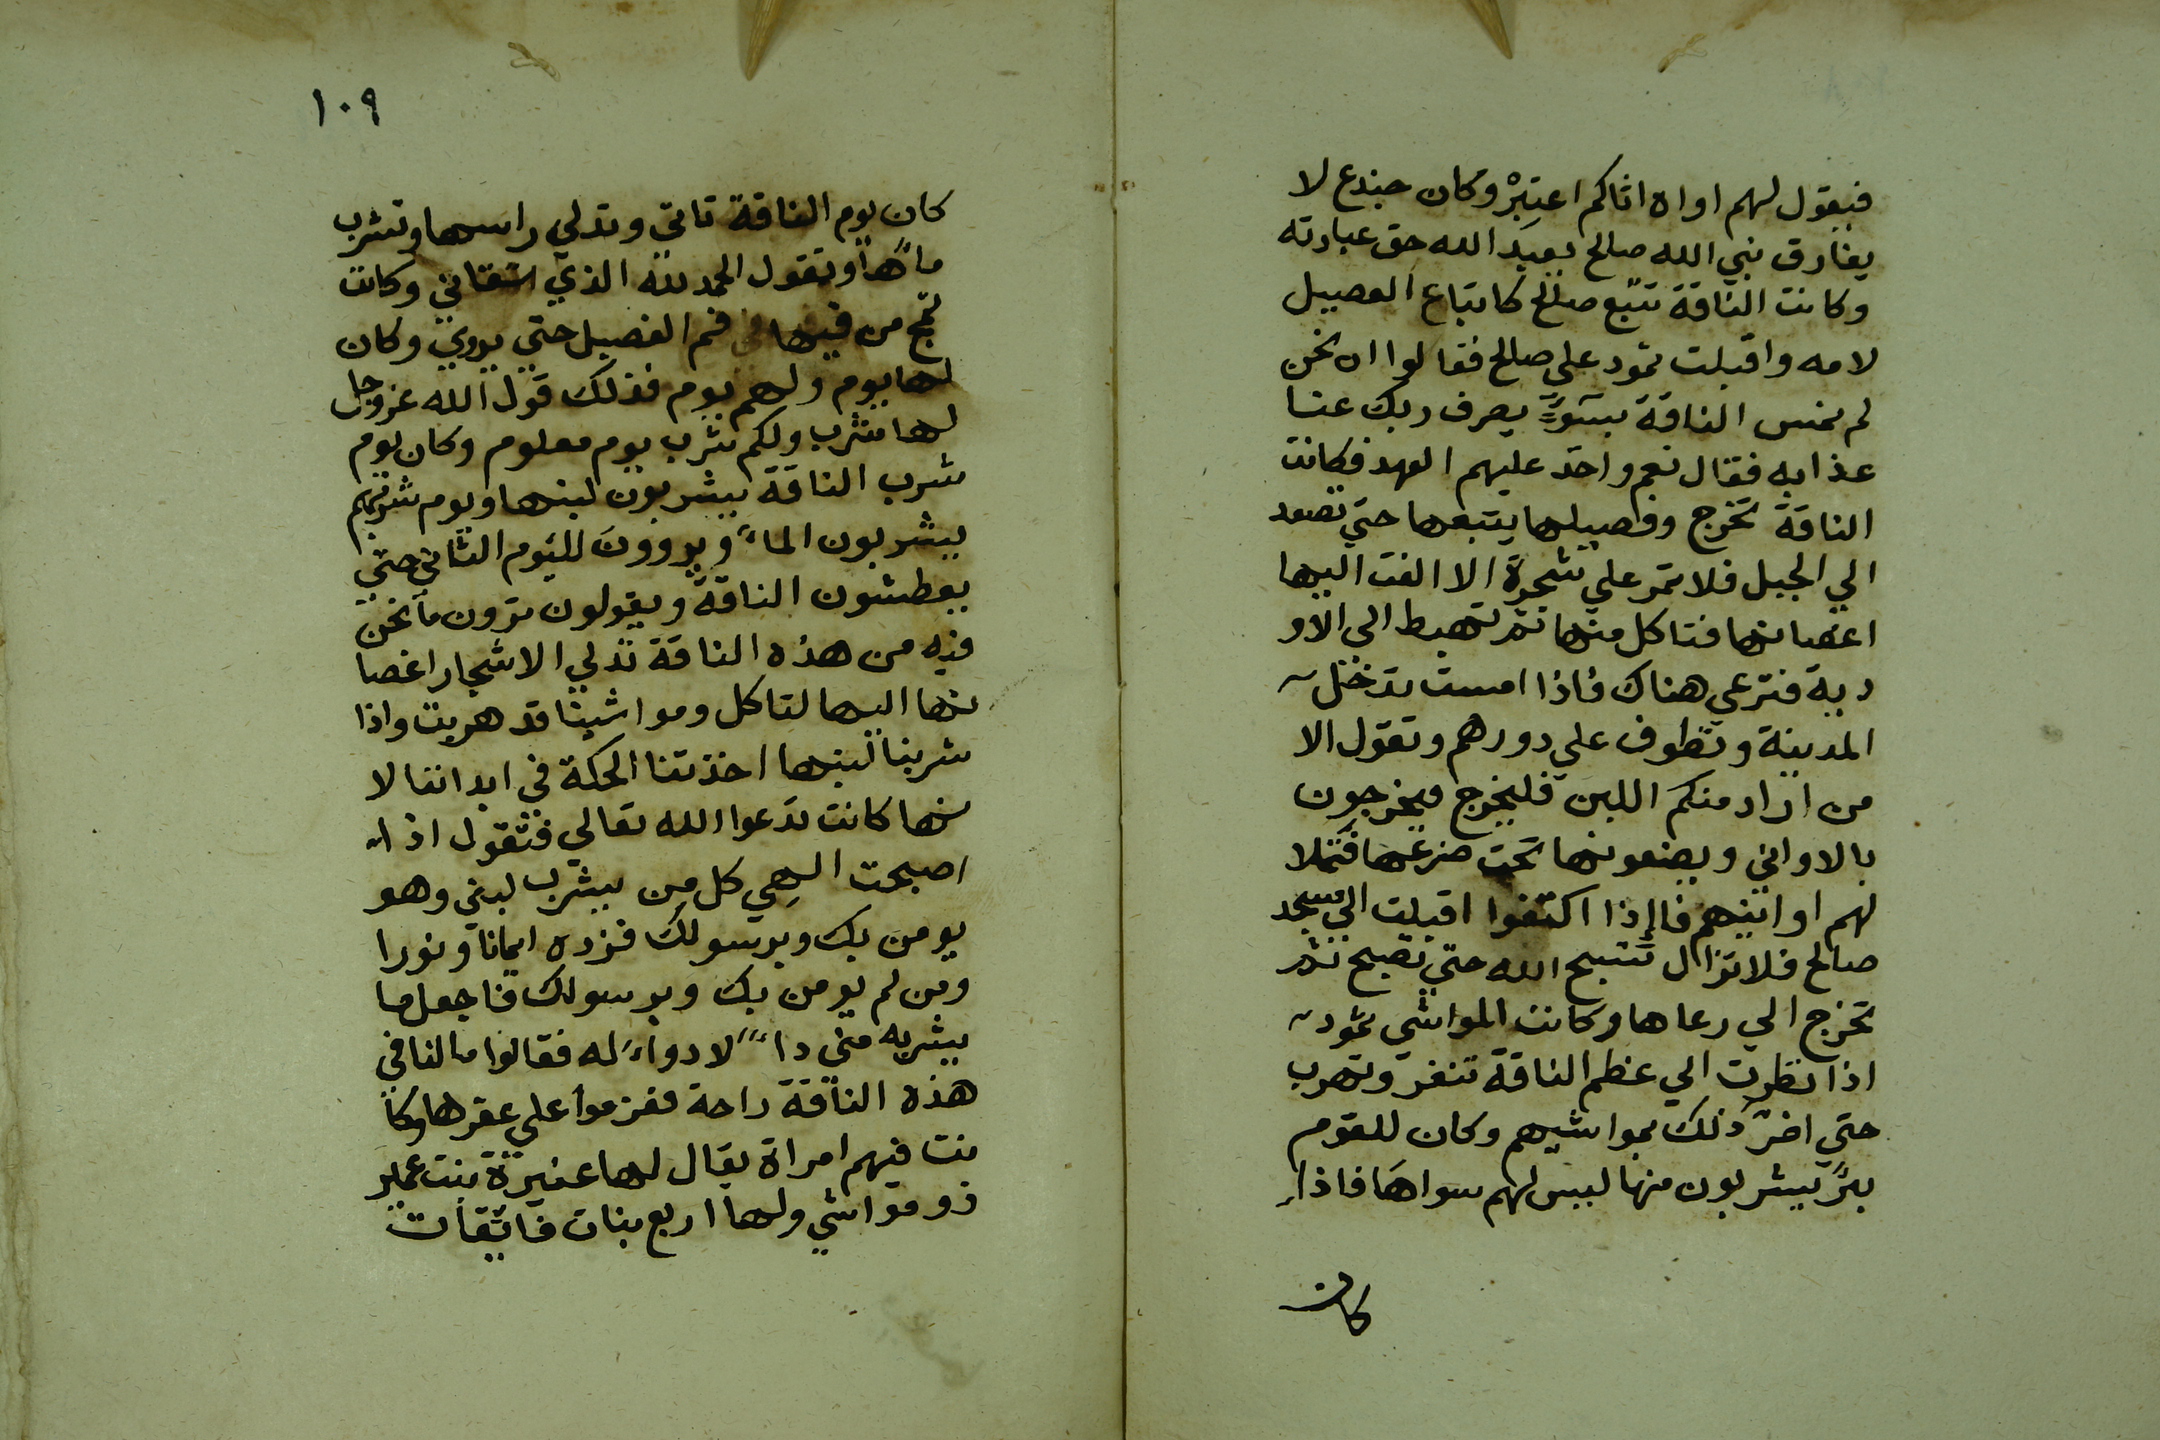 فيقول لهم اواه اتاكم اعتبر وكان جندع لا
يفارق نبي الله صالح يعبد الله حق عبادته
وكانت الناقة تتبع صالح كاتباع الفصيل
لامه واقبلت ثمود علي صالح فقالوا ان نحن
لم نمس الناقة بسوء يصرف ربك عنا
عذابه فقال نعم واخذ عليهم العهد فكانت
الناقة تخرج وفصيلها يتبعها حتي تصعد
الي الجبل فلا تمر علي شجرة الا الفت اليها
اغصانها فتاكل منها ثم تهبط الي الاو
دية فترعي هناك فاذا امست تدخل
المدينة وتطوف علي دورهم وتقول الا
من اراد منكم اللبن فليخرج فيخرجون
بالاواني ويضعونها تحت ضرعها فتملا
لهم اوانيهم فااذا اكتفوا اقبلت الي مسجد
صالح فلا تزال تسبح الله حتي تصبح ثم
تخرج الي رعاها وكانت المواشي ثمود
اذا نظرت الي عظم الناقة تنفر وتهرب
حتي اضر ذلك بمواشيهم وكان للقوم
بئر يشربون منها ليس لهم سواها فاذا
كان
١٠٩
كان يوم الناقة تاتي وتدلي راسها وتشرب
ماءها وتقول الحمد لله الذي اسقاني وكانت
تمج من فيها في فم الفصيل حتي يروي وكان
لها يوم ولهم يوم فذلك قول الله عز وجل
لها شرب ولكم شرب يوم معلوم وكان يوم
شرب الناقة يشربون لبنها ويوم شربهم
يشربون الماء ويروون لليوم الثاني حتي
يعطشون الناقة ويقولون ترون ما نحن
فيه من هذه الناقة تدلي الاشجار اغصا
نها اليها لتاكل ومواشينا قد هربت واذا
شربنا لبنها اخذتنا الحكة في ابداننا لا
نها كانت تدعوا الله تعالي فتقول اذا
اصبحت الهي كل من يشرب لبني وهو
يومن بك وبرسولك فزده ايمانا ونورا
ومن لم يومن بك وبرسولك فاجعل ما
يشربه مني داء لا دواء له فقالوا ما لنا في
هذه الناقة راحة فعزموا علي عقرها وكا
نت فيهم امراة يقال لها عنيزة بنت عمير
ذو مواشي ولها اربع بنات فايقات